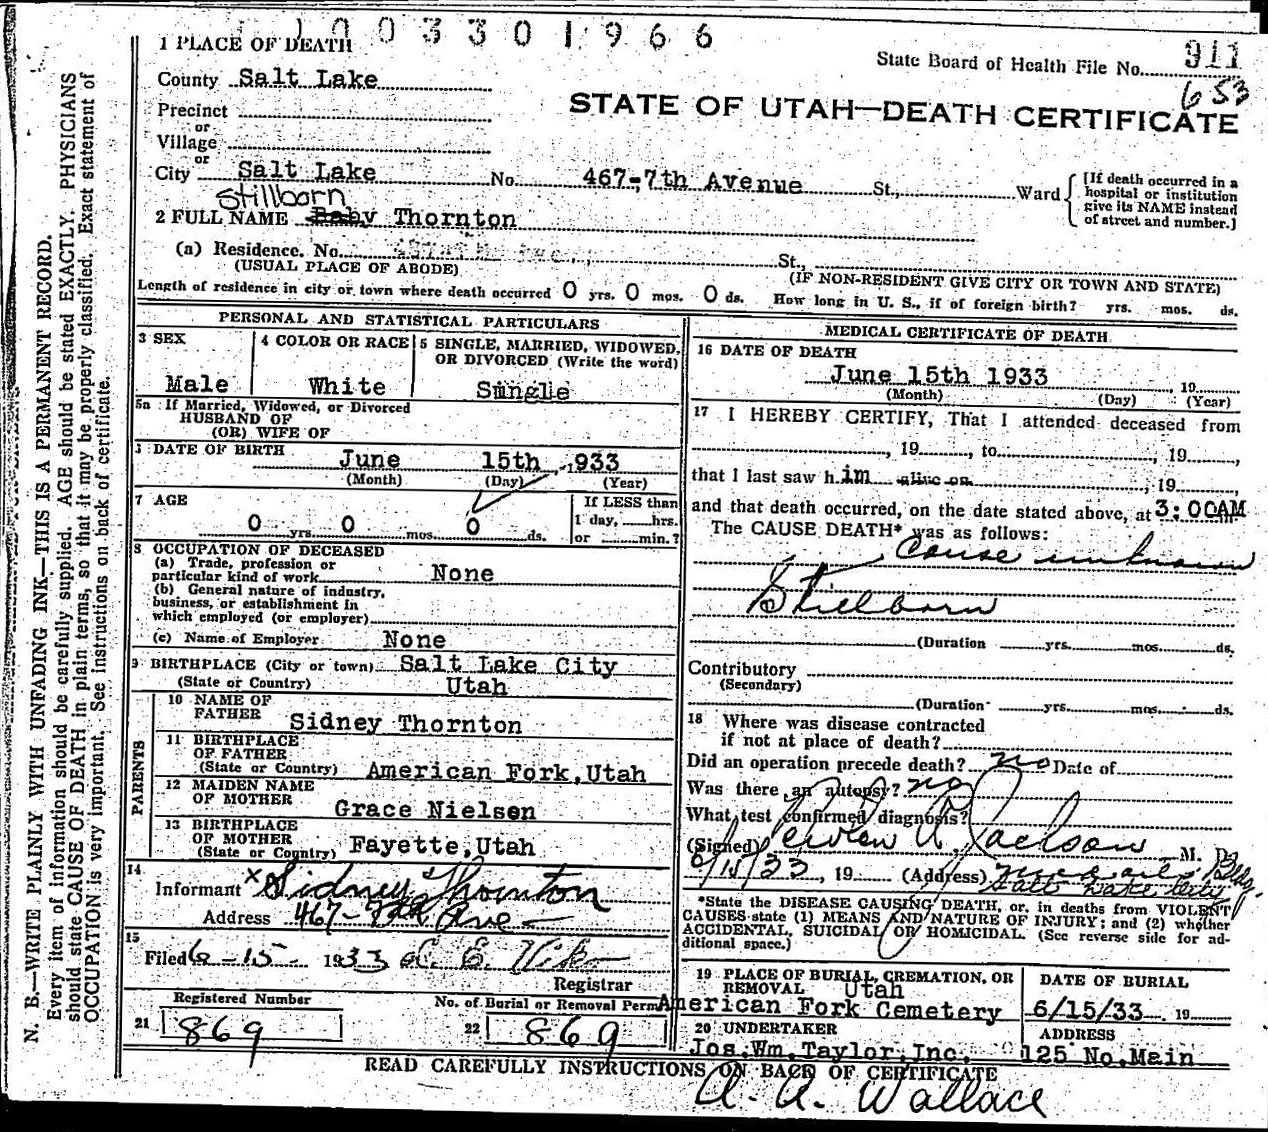 1003301966
1 PLACE OF DEATH
State Board of Health File No. 911
653
County Salt Lake
STATE OF UTAH—DEATH CERTIFICATE
Precinct
or
Village
or
City Salt Lake No. 467-7th Avenue St., Ward
[If death occurred in a
hospital or institution
give its NAME instead
of street and number.]
Stillborn
2 FULL NAME Baby Thornton
(a) Residence. No. St.,
(USUAL PLACE OF ABODE) (IF NON-RESIDENT GIVE CITY OR TOWN AND STATE)
Length of residence in city or town where death occurred 0 yrs. 0 mos. 0 ds. How long in U. S., if of foreign birth? yrs. mos. ds.
PERSONAL AND STATISTICAL PARTICULARS
3 SEX
Male
4 COLOR OR RACE
White
5 SINGLE, MARRIED, WIDOWED,
OR DIVORCED (Write the word)
Single
5a If Married, Widowed, or Divorced
HUSBAND OF
(OR) WIFE OF
DATE OF BIRTH June 15th, 1933
(Month) (Day) (Year)
7 AGE
0 yrs. 0 mos. 0 ds.
If LESS than
1 day, hrs.
or min.?
8 OCCUPATION OF DECEASED
(a) Trade, profession or
particular kind of work None
(b) General nature of industry,
business, or establishment in
which employed (or employer)
(c) Name of Employer None
9 BIRTHPLACE (City or town) Salt Lake City
(State or Country) Utah
PARENTS
10 NAME OF
FATHER Sidney Thornton
11 BIRTHPLACE
OF FATHER
(State or Country) American Fork, Utah
12 MAIDEN NAME
OF MOTHER Grace Nielsen
13 BIRTHPLACE
OF MOTHER
(State or Country) Fayette, Utah
14
Informant x Sidney Thornton
Address 467- 7th Ave
15
Filed 6-15- 1933
Registrar
Registered Number
21 869
No. of Burial or Removal Permit
22 869
MEDICAL CERTIFICATE OF DEATH
16 DATE OF DEATH
June 15th 1933, 19
(Month) (Day) (Year)
17 I HEREBY CERTIFY, That I attended deceased from
, 19 , to , 19 ,
that I last saw him alive on , 19 ,
and that death occurred, on the date stated above, at 3:00AM
The CAUSE DEATH* was as follows:
Cause unknown
Stillborn
(Duration yrs. mos. ds.
Contributory
(Secondary)
(Duration yrs. mos. ds.
18 Where was disease contracted
if not at place of death?
Did an operation precede death? no Date of
Was there an autopsy? no
What test confirmed diagnosis?
(Signed) Jackson M. D.
6/15/33, 19 (Address) Medical Arts Bldg.
Salt Lake City
*State the DISEASE CAUSING DEATH, or, in deaths from VIOLENT
CAUSES state (1) MEANS AND NATURE OF INJURY; and (2) whether
ACCIDENTAL, SUICIDAL OR HOMICIDAL. (See reverse side for ad-
ditional space.)
19 PLACE OF BURIAL, CREMATION, OR
REMOVAL Utah
American Fork Cemetery
DATE OF BURIAL
6/15/33 19
20 UNDERTAKER
Jos. Wm. Taylor, Inc.
ADDRESS
125 No. Main
READ CAREFULLY INSTRUCTIONS ON BACK OF CERTIFICATE
A. A. Wallace
N. B.—WRITE PLAINLY WITH UNFADING INK—THIS IS A PERMANENT RECORD.
Every item of information should be carefully supplied. AGE should be stated EXACTLY. PHYSICIANS
should state CAUSE OF DEATH in plain terms, so that it may be properly classified. Exact statement of
OCCUPATION is very important. See instructions on back of certificate.